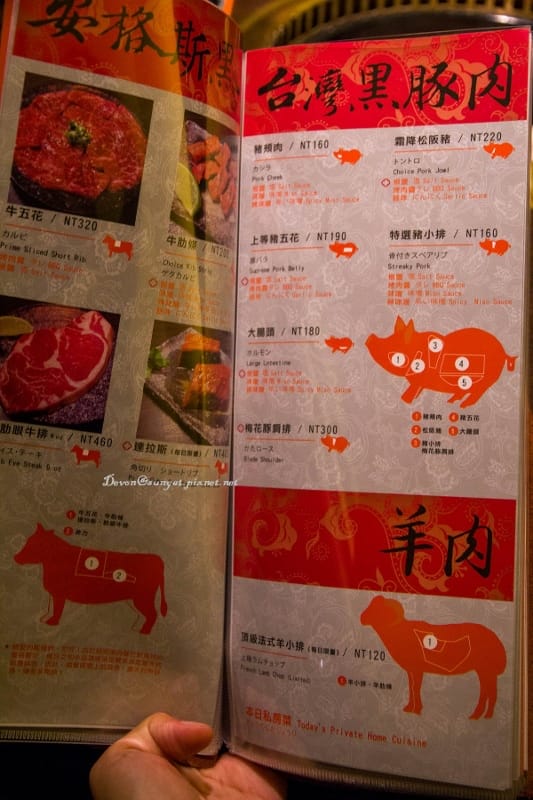 安格斯黑
牛五花 / NT320
カルビ
Prime Sliced Short Rib
牛肋條 / NT200
ゲタカルビ
肋眼牛排 / NT460
達拉斯 (每日限量) / NT
角切り ショートリブ
Devon@sunyat.pixnet.net
① 牛五花、牛肋條
台灣黑豚肉
豬頰肉 / NT160
カシラ
Pork Cheek
椒鹽 塩 Salt Sauce
味噌 味噌 Miso Sauce
辣味噌 辛い味噌 Spicy Miso Sauce
霜降松阪豬 / NT220
トントロ
Choice Pork Jowl
椒鹽 塩 Salt Sauce
烤肉醬 タレ BBQ Sauce
蒜味 にんにく Garlic Sauce
上等豬五花 / NT190
豚バラ
Supreme Pork Belly
椒鹽 塩 Salt Sauce
烤肉醬 タレ BBQ Sauce
蒜味 にんにく Garlic Sauce
特選豬小排 / NT160
骨付きスペアリブ
Streaky Pork
椒鹽 塩 Salt Sauce
烤肉醬 タレ BBQ Sauce
味噌 味噌 Miso Sauce
辣味噌 辛い味噌 Spicy Miso Sauce
大腸頭 / NT180
ホルモン
Large Intestine
椒鹽 塩 Salt Sauce
味噌 味噌 Miso Sauce
辣味噌 辛い味噌 Spicy Miso Sauce
梅花豚肩排 / NT300
かたロース
Blade Shoulder
1 2 3 4 5
① 豬頰肉 ④ 豬五花
② 松阪豬 ⑤ 大腸頭
③ 豬小排
梅花豚肩排
1 2
羊肉
頂級法式羊小排 (每日限量) / NT120
上級ラムチョップ
French Lamb Chop (Limited)
1
① 羊小排、羊肋條
本日私房菜 Today's Private Home Cuisine